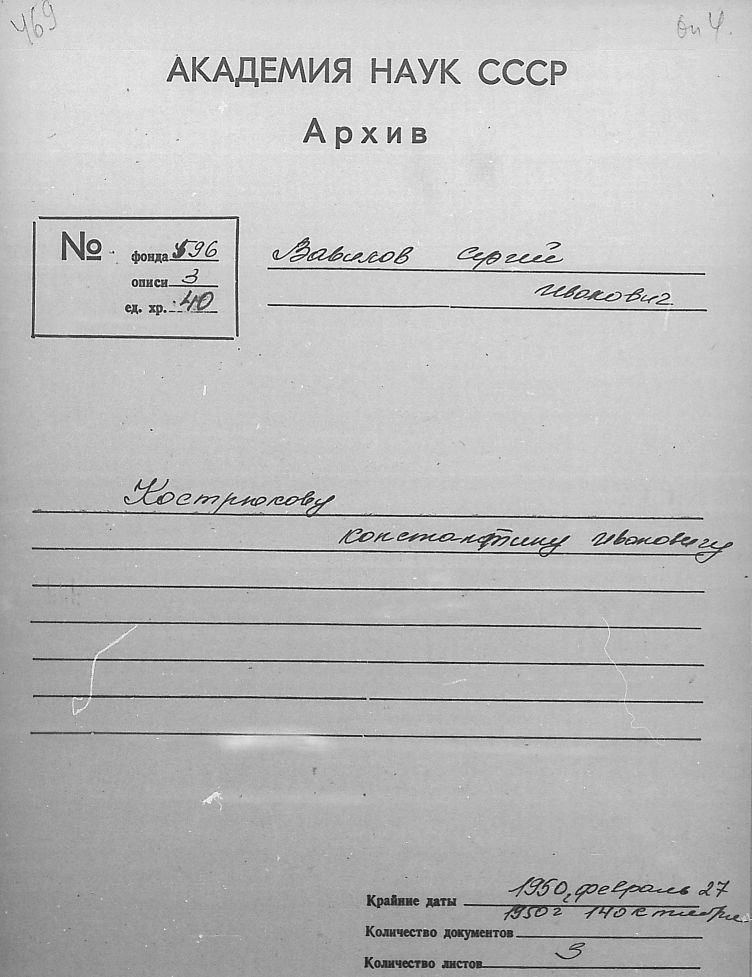 469
оп 4.
АКАДЕМИЯ НАУК СССР
Архив
№ фонда 596
описи 3
ед. хр. 40
Вавилов Сергей
Иванович
Кострюкову
Константину Ивановичу
Крайние даты 1950, февраль 27
1950 г 14 октября
Количество документов
Количество листов 3